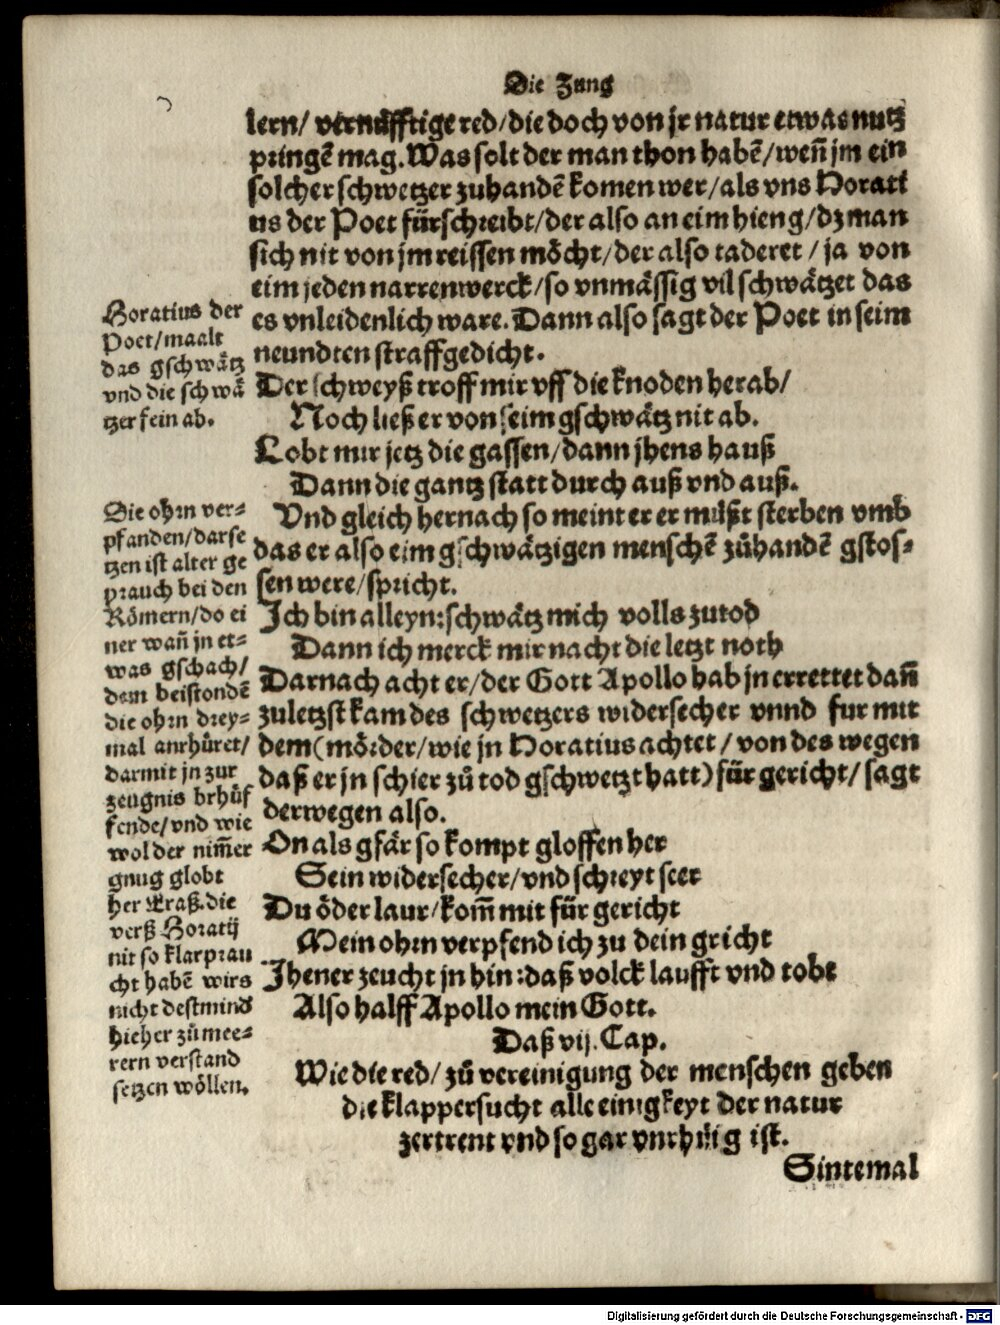 Die Zung
lern/ vernüfftige red/die doch von jr natur etwas nutz
pringē mag. Was solt der man thon habē/weñ jm ein
solcher schwetzer zuhandē komen wer/als vns Horati
us der Poet fürschreibt/der also an eim hieng/dz man
sich nit von jm reissen möcht/der also taderet / ja von
eim jeden narrenwerck/so vnmässig vil schwätzet das
es vnleidenlich ware. Dann also sagt der Poet in seim
neundten straffgedicht.
Horatius der
Poet/maalt
das gschwätz
vnd die schwä
tzer fein ab.
Der schweyß troff mir vff die knoden herab/
Noch ließ er von seim gschwätz nit ab.
Lobt mir jetz die gassen/dann jhens hauß
Dann die gantz statt durch auß vnd auß.
Vnd gleich hernach so meint er er müßt sterben vmb
das er also eim gschwätzigen menschē zůhandē gstos-
sen were/spricht.
Ich bin alleyn:schwätz mich volls zutod
Dann ich merck mir nacht die letzt noth
Darnach acht er/der Gott Apollo hab jn errettet dañ
zuletzst kam des schwetzers widersecher vnnd fur mit
dem(mörder/wie jn Horatius achtet / von des wegen
daß er jn schier zů tod gschwetzt hatt) für gericht/ sagt
derwegen also.
On als gfär so kompt gloffen her
Sein widersecher/vnd schreyt seer
Du öder laur/kom̃ mit für gericht
Mein ohrn verpfend ich zu dein gricht
Jhener zeucht jn hin:daß volck laufft vnd tobt
Also halff Apollo mein Gott.
Die ohrn ver-
pfanden/darse
tzen ist alter ge
prauch bei den
Römern/do ei
ner wañ jn et-
was gschach/
dem beistondē
die ohrn drey-
mal anrhüret/
darmit jn zur
zeugnis brhüf
fende/vnd wie
wol der nim̃er
gnug globt
her Eraß.die
verß Horatij
nit so klar prau
cht habē wirs
nicht destmind
hieher zů mee-
rern verstand
setzen wöllen.
Daß vij. Cap.
Wie die red/ zů vereinigung der menschen geben
die klappersucht alle einigkeyt der natur
zertrent vnd so gar vnrhüig ist.
Sintemal
Digitalisierung gefördert durch die Deutsche Forschungsgemeinschaft - DFG